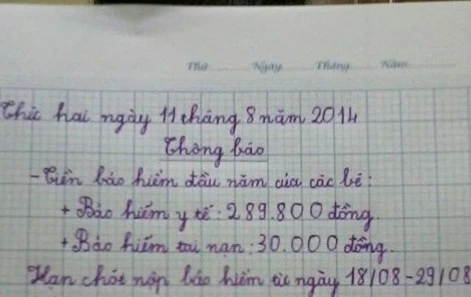 Thứ Ngày Tháng Năm
Thứ hai ngày 11 tháng 8 năm 2014
Thông báo
- Tiền bảo hiểm đầu năm của các bé:
+ Bảo hiểm y tế: 289.800 đồng.
+ Bảo hiểm tai nạn: 30.000 đồng.
Hạn chót nộp bảo hiểm từ ngày 18/08-29/08